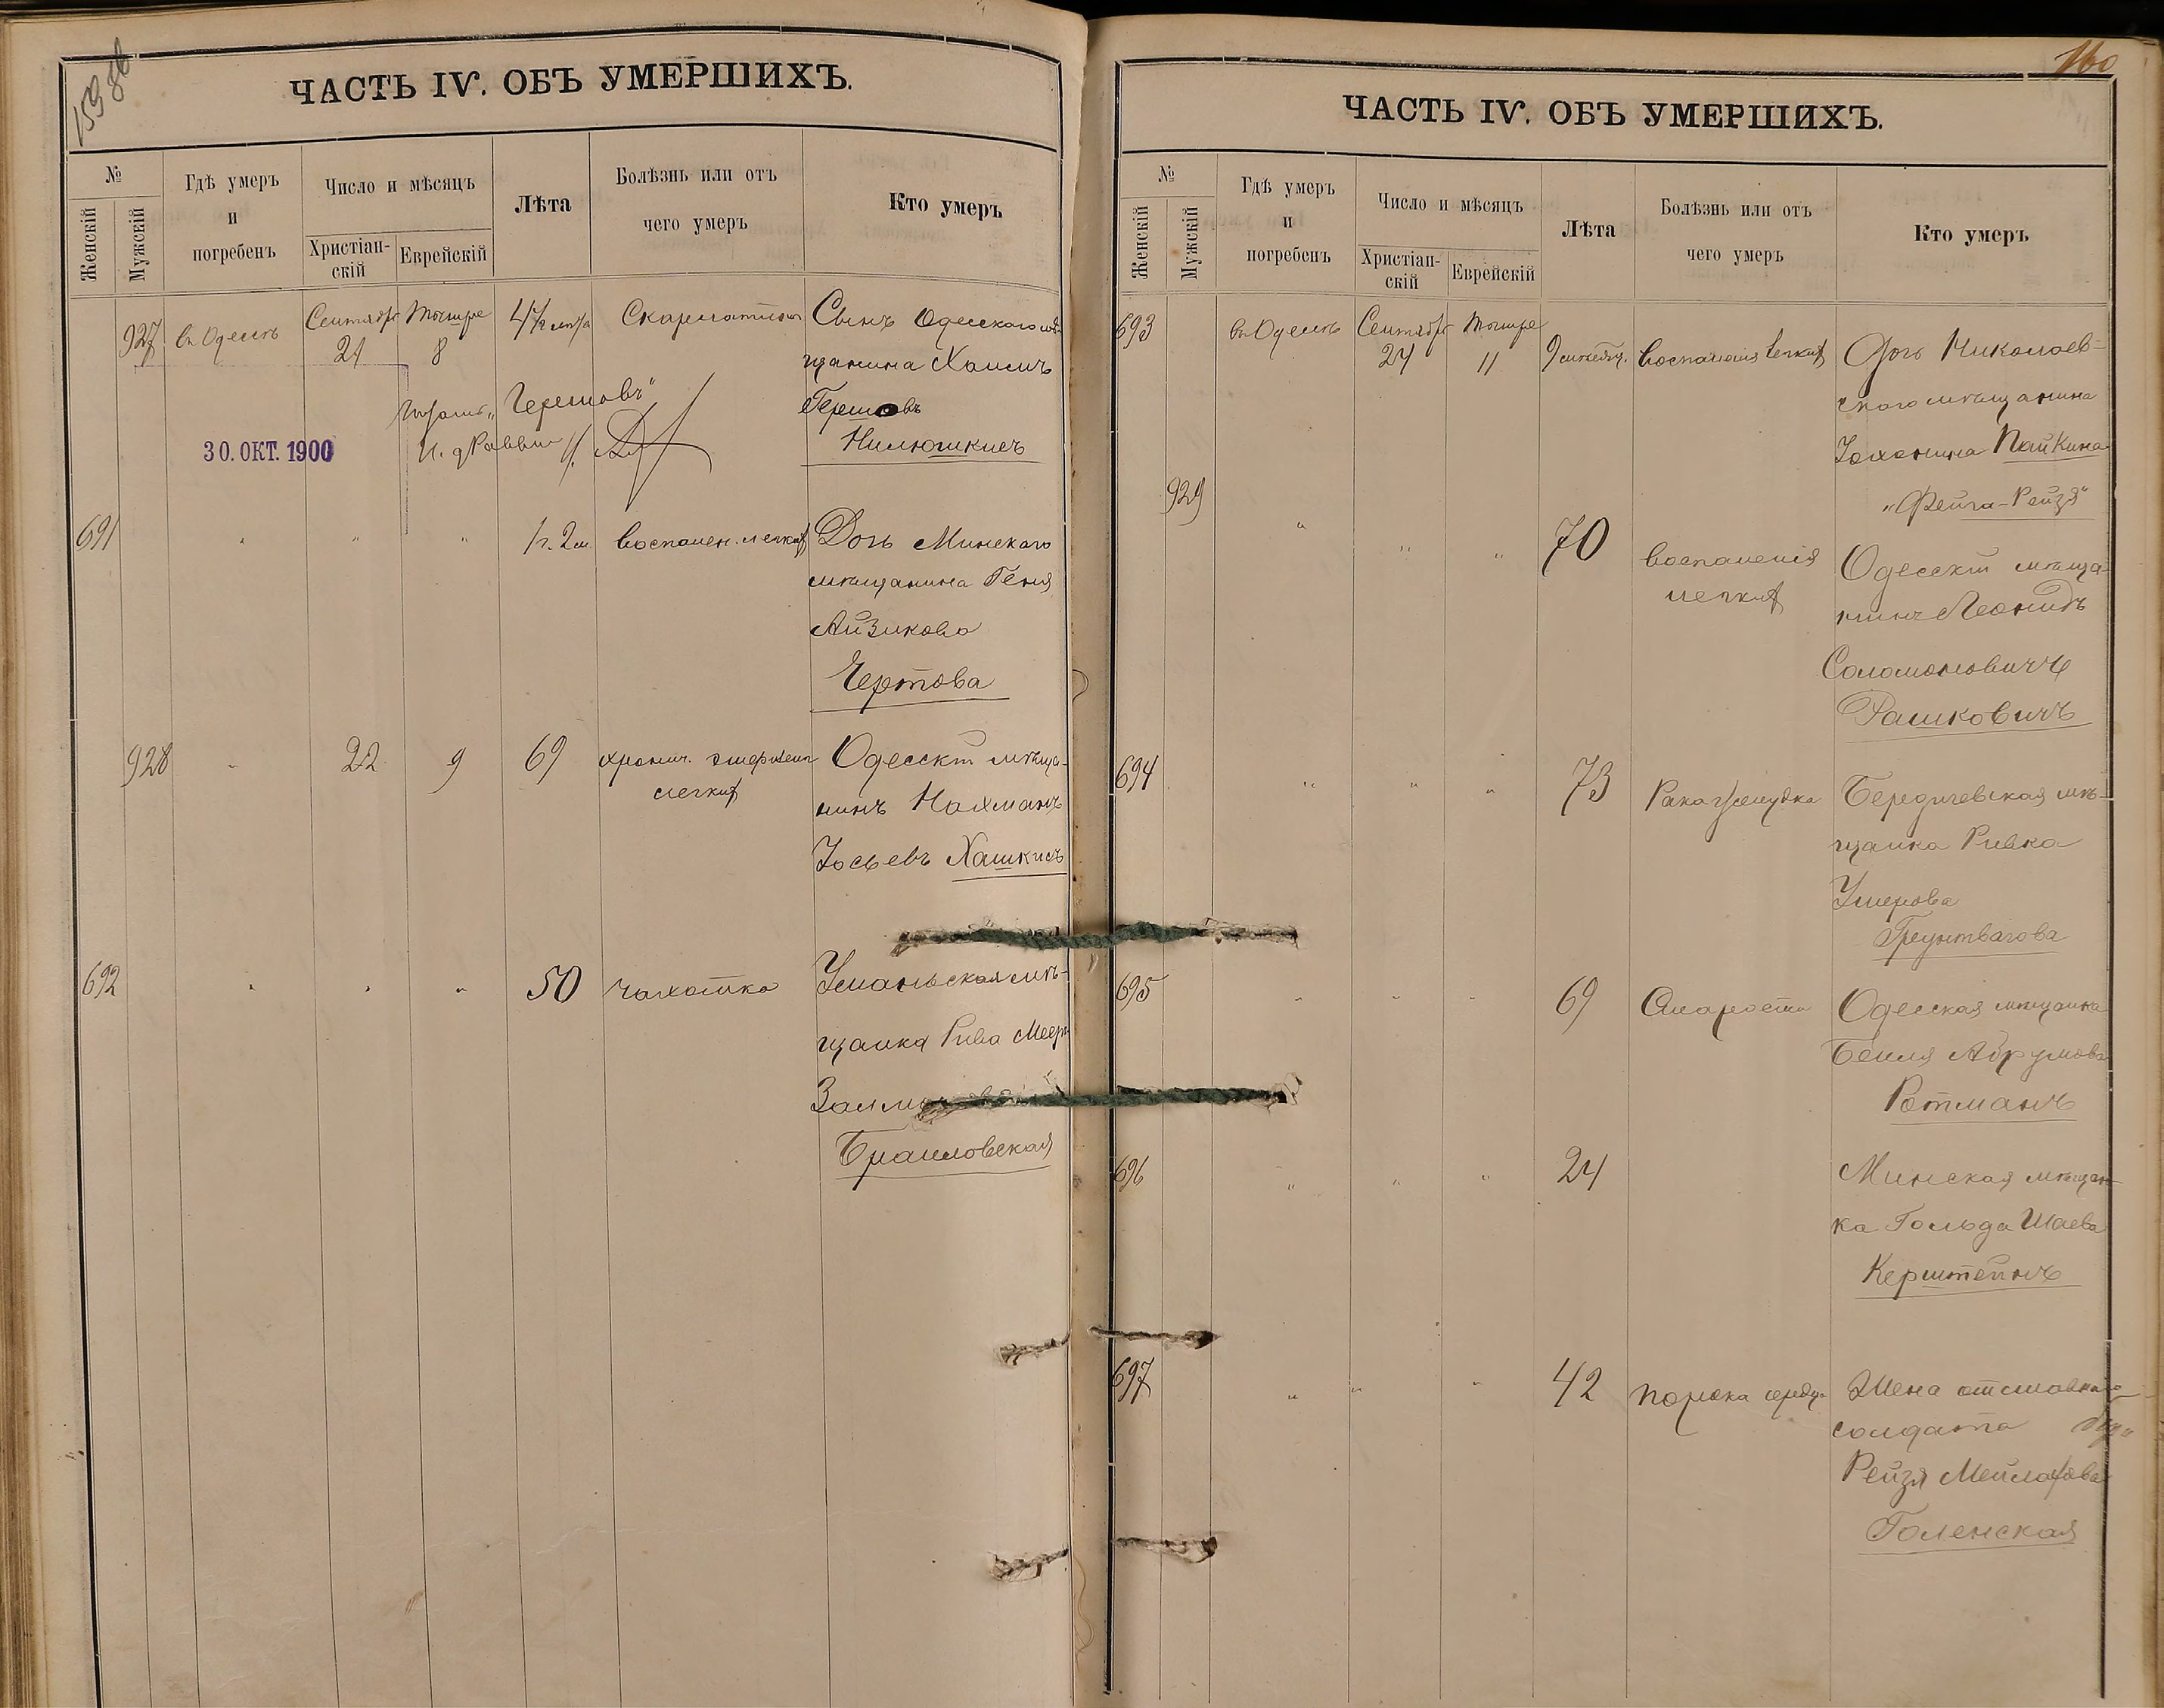 159 об
ЧАСТЬ IV. ОБЪ УМЕРШИХЪ.
№
Женскій
Мужскій
Гдѣ умеръ
и
погребенъ
Число и мѣсяцъ
Христіан-
скій
Еврейскій
Лѣта
Болѣзнь или отъ
чего умеръ
Кто умеръ
927 въ Одессѣ Сентябр Тишре 4½ Скарлатина Сынъ Одесскаго мѣ-
21 8 щанина Хаимъ
Гершовъ
Нилюшкисъ
„Гершовъ“
И. д. Раввин
30. ОКТ. 1900
691 „ „ „ 1г. 2м. воспален. легких Дочь Минскаго
мѣщанина Геня
Айзикова
Чертова
928 „ 22 9 69 хронич. легких Одесскій мѣща-
нинъ Нахманъ
Іосьевъ Хашкисъ
692 „ „ „ 50 чахотка Уманьская мѣ-
щанка Рива Меер
Браиловская
160
ЧАСТЬ IV. ОБЪ УМЕРШИХЪ.
№
Женскій
Мужскій
Гдѣ умеръ
и
погребенъ
Число и мѣсяцъ
Христіан-
скій
Еврейскій
Лѣта
Болѣзнь или отъ
чего умеръ
Кто умеръ
693 въ Одессѣ Сентябр Тишре 9 воспаленія легких Дочь Николаев-
24 11 скаго мѣщанина
Іохонина Пайкина
„Фейга-Рейзя“
929 „ „ „ 70 воспаленія Одесскій мѣща-
легких нинъ Леонидъ
Соломоновичъ
Рашковичъ
694 „ „ „ 73 Рака желудка Бердичевская мѣ-
щанка Ривка
Умерова
Грунтвагова
695 „ „ „ 69 Старости Одесская мѣщанка
Бейля Абрумова
Ротманъ
696 „ „ „ 24 Минская мѣщан-
ка Гольда Шаева
Керштейнъ
697 „ „ „ 42 порока сердца Жена отставнаго
солдата
Рейзя Мейлахова
Голенская